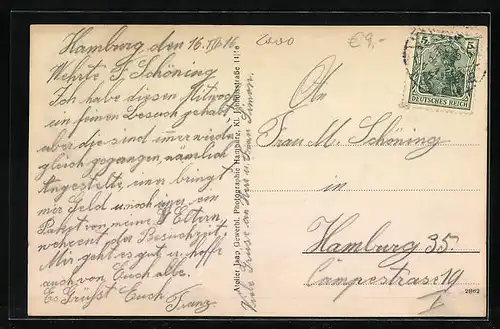 Hamburg den 16. VII 16
Wehrte F. Schöning
Ich habe diesen Mitwoch
un feinen Besuch gehabt,
aber die sind immer wied
gleich gegangen, nämlich
Angestelte, einer bringt
mer Geld u noch einer ein
Paket von meine Eltern,
wehrent der Besuchzeit.
Mir geht es gut u. hoffe
auch von Euch alle.
Es Grüßt Euch
Franz.
Viele Grüse an Herr u Frau Simon.
Atelier Jaap, Gewerbl. Photographie Hamburg, Kl.
2000
€9,-
5 5
DEUTSCHES REICH
An
Frau M. Schöning
in
Hamburg 35.
Campestrase 19
I
2862